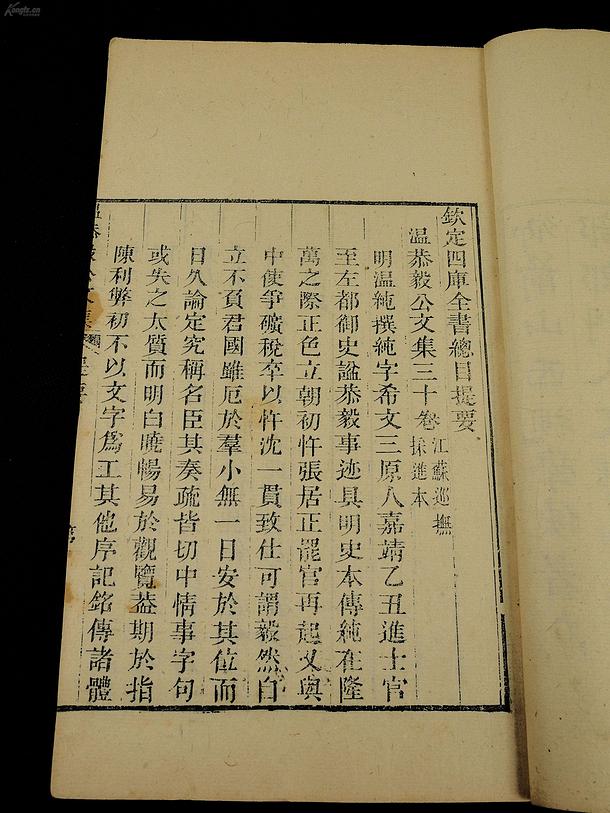 欽定四庫全書總目提要
溫恭毅公文集三十卷 江蘇巡撫
採進本
明溫純撰純字希文三原人嘉靖乙丑進士官
至左都御史諡恭毅事迹具明史本傳純在隆
萬之際正色立朝初忤張居正罷官再起又與
中使爭礦稅卒以忤沈一貫致仕可謂毅然自
立不負君國雖厄於羣小無一日安於其位而
日久論定究稱名臣其奏疏皆切中情事字句
或失之太質而明白曉暢易於觀覽葢期於指
陳利弊初不以文字爲工其他序記銘傳諸體
Kongfz.cn